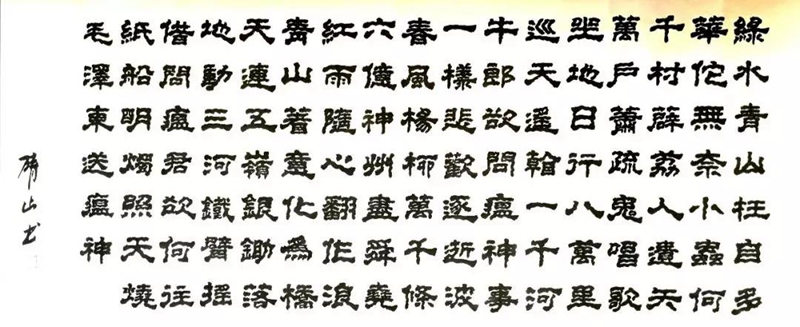 綠水青山枉自多
華佗無奈小蟲何
千村薜荔人遺矢
萬戶蕭疏鬼唱歌
坐地日行八萬里
巡天遙看一千河
牛郎欲問瘟神事
一樣悲歡逐逝波
春風楊柳萬千條
六億神州盡舜堯
紅雨隨心翻作浪
青山著意化為橋
天連五嶺銀鋤落
地動三河鐵臂搖
借問瘟君欲何往
紙船明燭照天燒
毛澤東送瘟神
山书